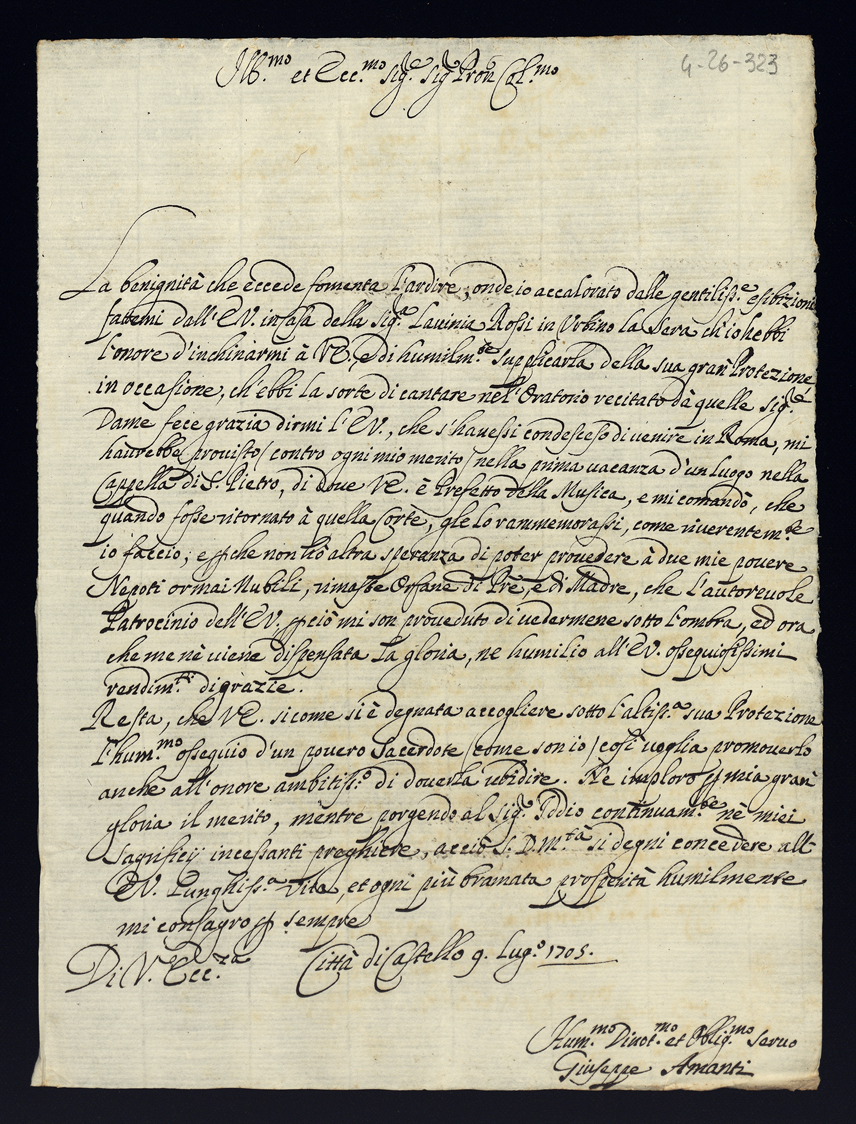 4-26-323
Ill.mo et Ecc.mo Sig.re Sig.re Pron Col.mo
La benignità che eccede fomenta l'ardire, onde io accalorato dalle gentiliss.e esibizioni
fattemi dall'E.V. in casa della Sig.a Lavinia Rossi in Urbino la sera ch'io hebbi
l'onore d'inchinarmi à V.E., e di humilm.te supplicarla della sua gran Protezione,
in occasione, ch'ebbi la sorte di cantare nell'Oratorio recitato dà quelle Sig.re
Dame fece grazia dirmi l'E.V., che s'havessi condesceso di venire in Roma, mi
haurebbe provisto (contro ogni mio merito) nella prima vacanza d'un luogo nella
Cappella di S. Pietro, di dove V.E. è Prefetto della Musica, e mi comandò, che
quando fosse ritornato à quella Corte, gle lo rammemorassi, come riverentem.te
io faccio; e p che non hò altra speranza di poter provedere à due mie povere
Nepoti ormai Nubili, rimaste Orfane di Pre, e di Madre, che l'autorevole
Patrocinio dell'E.V. p ciò mi son proveduto di vedermene sotto l'ombra, ed ora
che me nè viene dispensata la gloria, ne humilio all'E.V. ossequiosissimi
rendim.ti di grazie.
Resta, che V.E. si come si è degnata accogliere sotto l'altiss.a sua Protezione
l'hum.mo ossequio d'un povero Sacerdote (come son io) così voglia promoverlo
anche all'onore ambitiss.o di doverla ubidire. Ne imploro p mia gran
gloria il merito, mentre porgendo al Sig.re Iddio continuam.te nè miei
Sagrifizij incessanti preghiere, acciò S. D. M.tà si degni concedere all'
E.V. lunghiss.a vita, et ogni più bramata prosperità humilmente
mi consagro p sempre
Di V. Ecc.za Città di Castello 9. Lug.o 1705.
Hum.mo Divot.mo et Oblig.mo Servo
Giuseppe Amanti